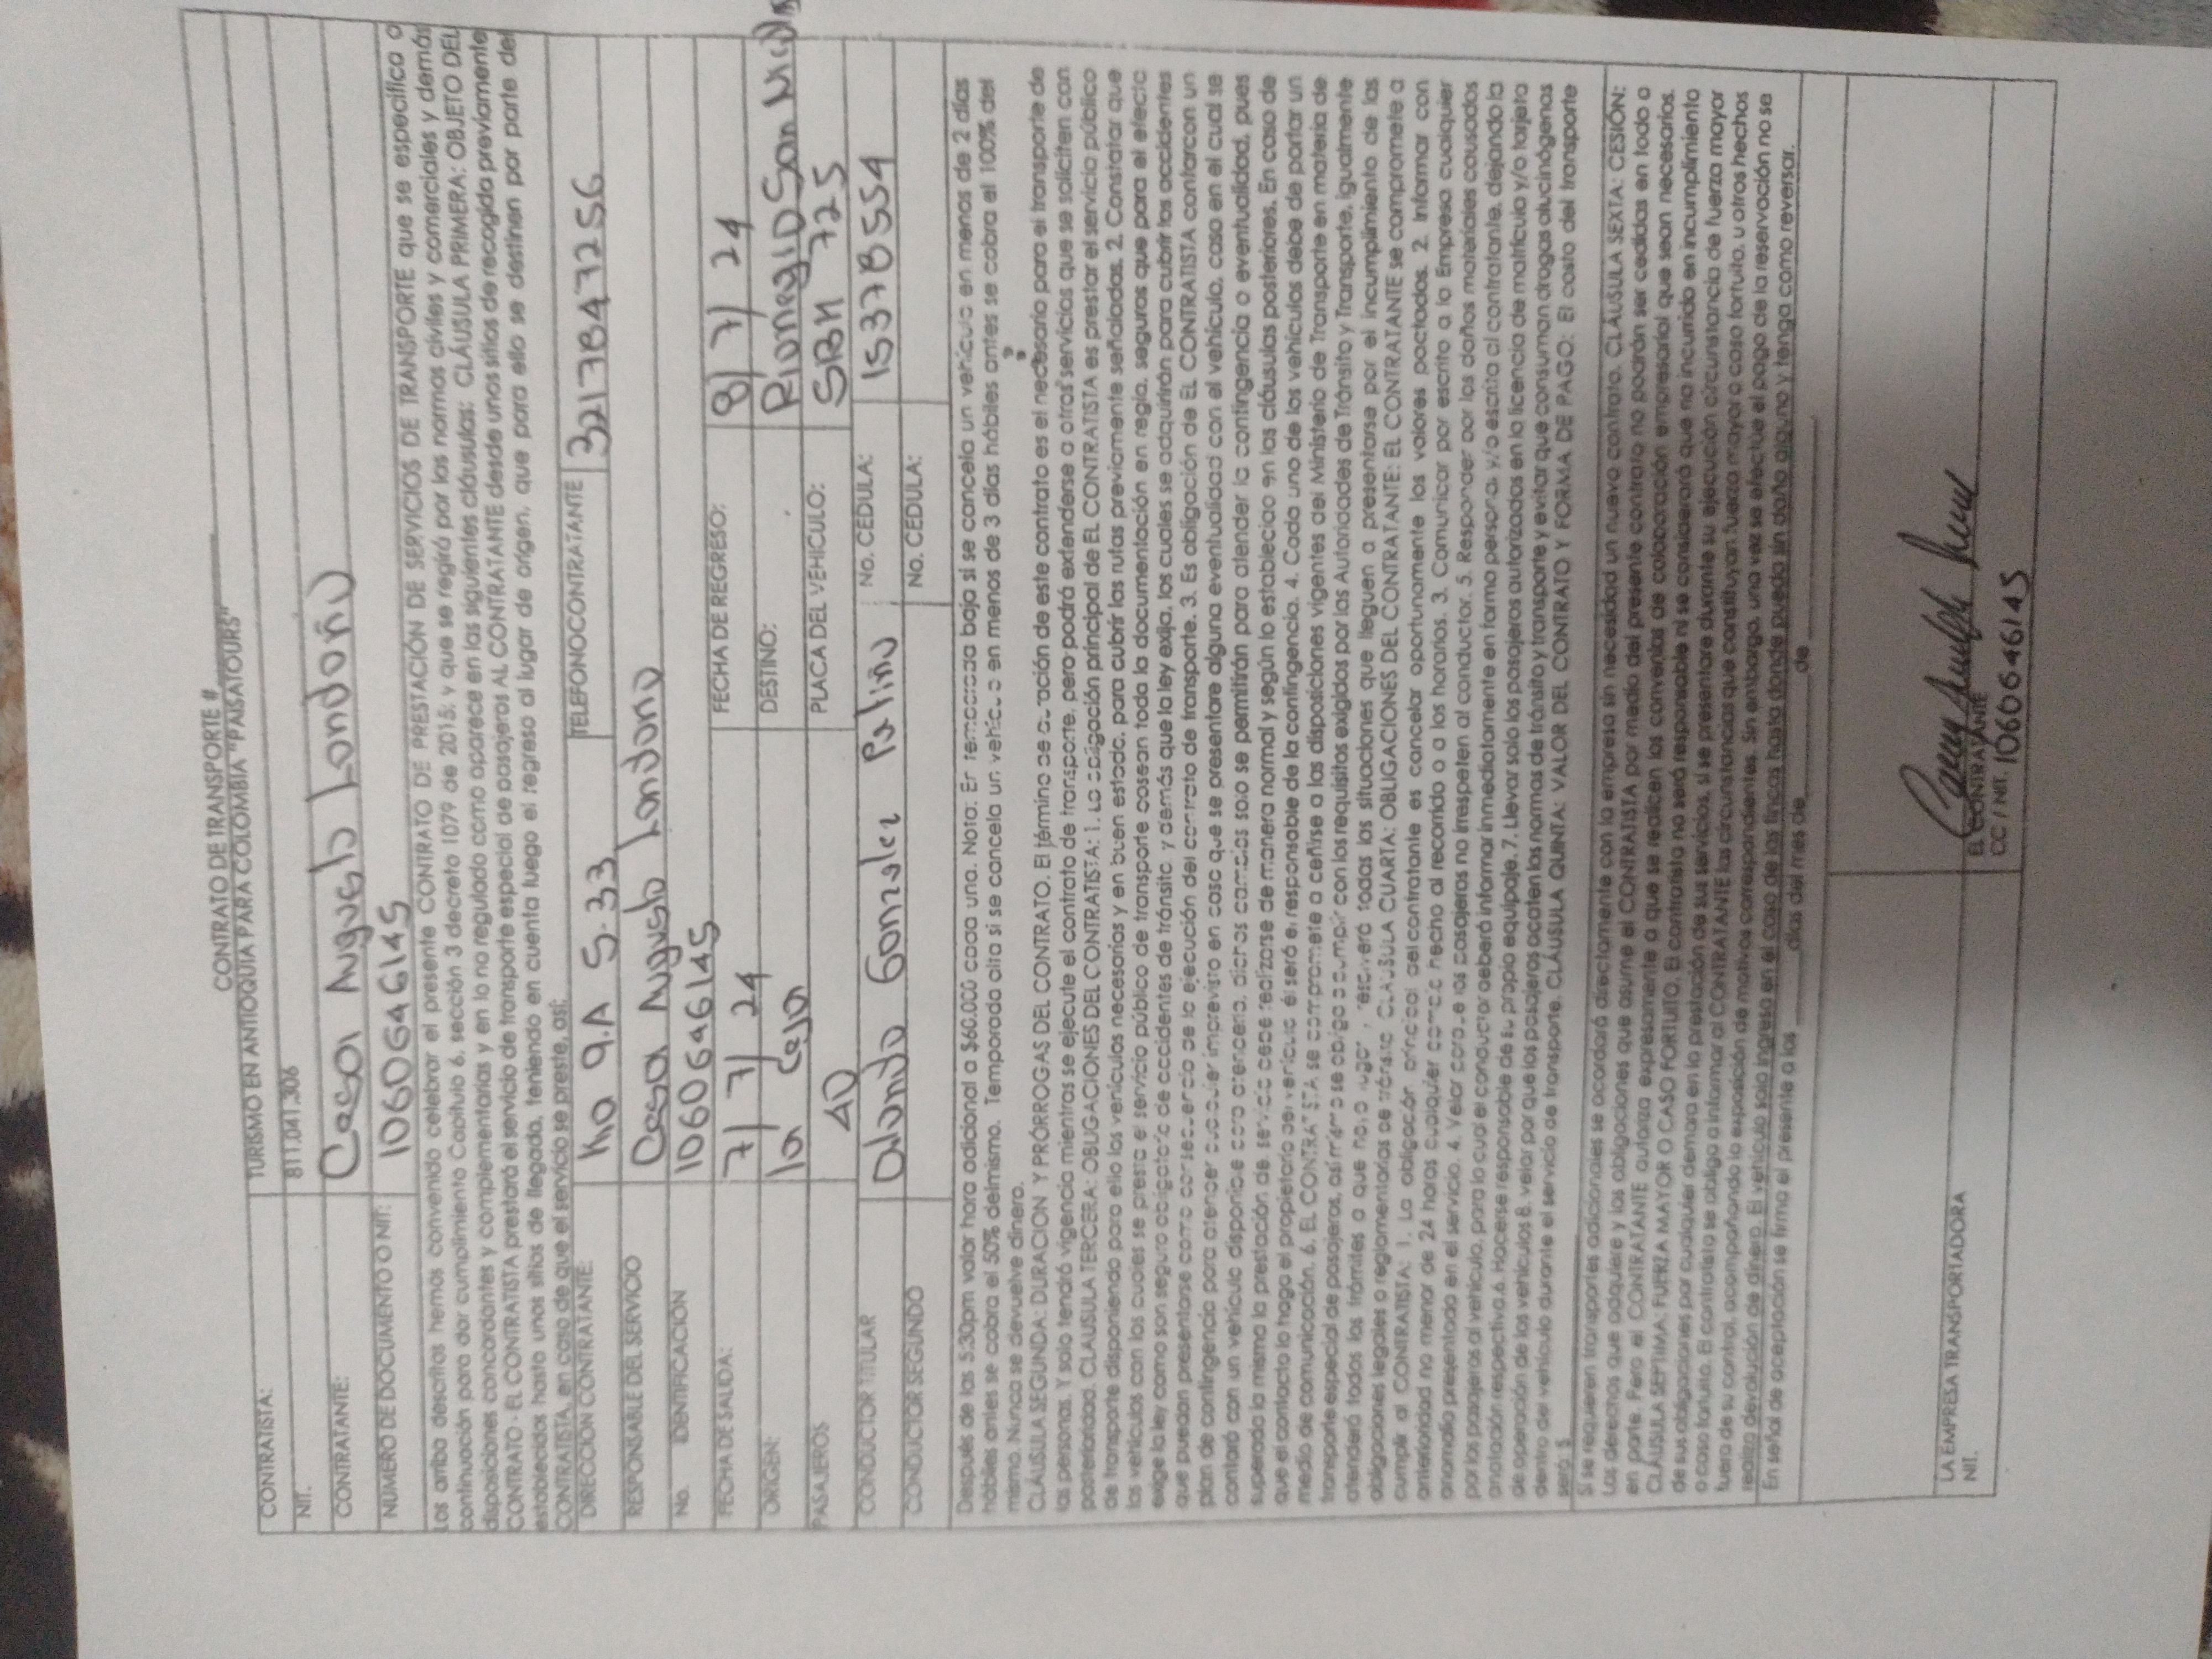 CONTRATO DE TRANSPORTE #
CONTRATISTA: TURISMO EN ANTIOQUIA PARA COLOMBIA "PAISATOURS"
NIT. 811.041.306
CONTRATANTE: Cesar Augusto Londoño
NUMERO DE DOCUMENTO O NIT: 1060646145
Los arriba descritos hemos convenido celebrar el presente CONTRATO DE PRESTACIÓN DE SERVICIOS DE TRANSPORTE que se especifica a
continuación para dar cumplimiento Capitulo 6, sección 3 decreto 1079 de 2015; y que se regirá por las normas civiles y comerciales y demás
disposiciones concordantes y complementarias y en lo no regulado como aparece en las siguientes cláusulas: CLÁUSULA PRIMERA: OBJETO DEL
CONTRATO - EL CONTRATISTA prestará el servicio de transporte especial de pasajeros AL CONTRATANTE desde unos sitios de recogida previamente
establecidos hasta unos sitios de llegada, teniendo en cuenta luego el regreso al lugar de origen, que para ello se destinen por parte del
CONTRATISTA, en caso de que el servicio se preste, así:
DIRECCIÓN CONTRATANTE: Kra 9.A 5.33 TELEFONOCONTRATANTE 3217847256
RESPONSABLE DEL SERVICIO Cesar Augusto Londono
No. IDENTIFICACION 1060646145
FECHA DE SALIDA: 7/7/24 FECHA DE REGRESO: 8/7/24
ORIGEN: la Ceja DESTINO: Rionegro San
PASAJEROS 40 PLACA DEL VEHICULO: 725
CONDUCTOR TITULAR Orlando Gonzalez Patiño No. CEDULA: 15378554
CONDUCTOR SEGUNDO No. CEDULA:
Después de las 5:30pm valor hora adicional a $60.000 cada una. Nota: En temporada baja si se cancela un vehículo en menos de 2 días
hábiles antes se cobra el 50% del mismo. Temporada alta si se cancela un vehículo en menos de 3 días hábiles antes se cobra el 100% del
mismo. Nunca se devuelve dinero.
CLÁUSULA SEGUNDA: DURACION Y PRÓRROGAS DEL CONTRATO. El término de duración de este contrato es el necesario para el transporte de
las personas. Y solo tendrá vigencia mientras se ejecute el contrato de transporte, pero podrá extenderse a otros servicios que se soliciten con
posterioridad. CLAUSULA TERCERA: OBLIGACIONES DEL CONTRATISTA: 1. La obligación principal de EL CONTRATISTA es prestar el servicio público
de transporte disponiendo para ello los vehículos necesarios y en buen estado, para cubrir las rutas previamente señaladas. 2. Constatar que
los vehículos con los cuales se presta el servicio público de transporte posean toda la documentación en regla, seguros que para el efecto
exige la ley como son seguro obligatorio de accidentes de tránsito y demás que la ley exija, los cuales se adquirirán para cubrir los accidentes
que puedan presentarse como consecuencia de la ejecución del contrato de transporte. 3. Es obligación de EL CONTRATISTA contar con un
plan de contingencia para atender cualquier imprevisto en caso que se presentare alguna eventualidad con el vehículo, caso en el cual se
contará con un vehículo disponible para atenderla, dichos cambios solo se permitirán para atender la contingencia o eventualidad, pues
superada la misma la prestación de servicio debe realizarse de manera normal y según lo establecido en las cláusulas posteriores. En caso de
que el contacto lo haga el propietario del vehículo él será el responsable de la contingencia. 4. Cada uno de los vehículos debe de portar un
medio de comunicación. 6. EL CONTRATISTA se compromete a ceñirse a las disposiciones vigentes del Ministerio de Transporte en materia de
transporte especial de pasajeros, así mismo se obliga a cumplir con los requisitos exigidos por las Autoridades de Tránsito y Transporte. Igualmente
atenderá todos los trámites a que haya lugar y resolverá todas las situaciones que lleguen a presentarse por el incumplimiento de las
obligaciones legales o reglamentarias de tránsito CLAUSULA CUARTA: OBLIGACIONES DEL CONTRATANTE: EL CONTRATANTE se compromete a
cumplir al CONTRATISTA: 1. La obligación principal del contratante es cancelar oportunamente los valores pactados. 2. Informar con
anterioridad no menor de 24 horas cualquier cambio hecho al recorrido o a los horarios. 3. Comunicar por escrito a la Empresa cualquier
anomalía presentada en el servicio. 4. Velar porque los pasajeros no irrespeten al conductor. 5. Responder por los daños materiales causados
por los pasajeros al vehículo, para lo cual el conductor deberá informar inmediatamente en forma personal y/o escrita al contratante, dejando la
anotación respectiva.6. Hacerse responsable de su propio equipaje. 7. Llevar solo los pasajeros autorizados en la licencia de matrícula y/o tarjeta
de operación de los vehículos 8. velar por que los pasajeros acaten las normas de tránsito y transporte y evitar que consuman drogas alucinógenas
dentro del vehículo durante el servicio de transporte. CLÁUSULA QUINTA: VALOR DEL CONTRATO Y FORMA DE PAGO: El costo del transporte
será $
Si se requieren transportes adicionales se acordará directamente con la empresa sin necesidad un nuevo contrato. CLÁUSULA SEXTA: CESIÓN:
Los derechos que adquiere y las obligaciones que asume el CONTRATISTA por medio del presente contrato no podrán ser cedidas en todo o
en parte. Pero el CONTRATANTE autoriza expresamente a que se realicen los convenios de colaboración empresarial que sean necesarios.
CLÁUSULA SEPTIMA: FUERZA MAYOR O CASO FORTUITO. El contratista no será responsable ni se considerará que ha incurrido en incumplimiento
de sus obligaciones por cualquier demora en la prestación de sus servicios, si se presentare durante su ejecución circunstancia de fuerza mayor
o caso fortuito. El contratista se obliga a informar al CONTRATANTE las circunstancias que constituyan fuerza mayor o caso fortuito, u otros hechos
fuera de su control, acompañando la exposición de motivos correspondientes. Sin embargo, una vez se efectúe el pago de la reservación no se
realiza devolución de dinero. El vehículo solo ingresa en el caso de las fincas hasta donde pueda sin daño alguno y tenga como reversar.
En señal de aceptación se firma el presente a los ____ días del mes de ____ de ____
LA EMPRESA TRANSPORTADORA
NIT.
EL CONTRATANTE
CC / NIT. 1060646145